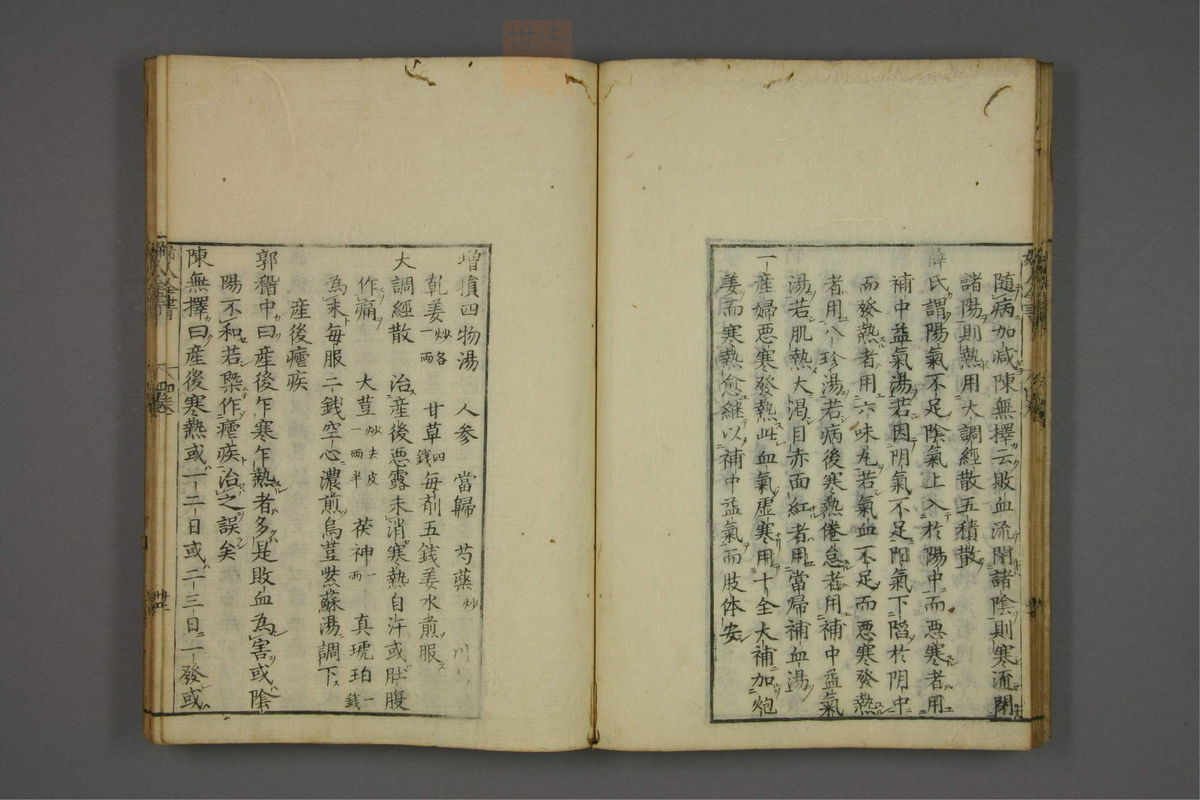 随病加减陳無擇云敗血流閉諸陰則寒流閉
諸陽則熱用大調經散五積散
薛氏謂陽氣不足陰氣上入於陽中而悪寒者用
補中益氣湯若因阴氣不足阳氣下陷於阴中
而發熱者用六味丸若氣血不足而悪寒發熱
者用八珍湯若病後寒熱倦怠者用補中益氣
湯若肌熱大渴目赤面紅者用當帰補血湯
一産婦悪寒發熱此血氣虚寒用十全大補加炮
姜而寒熱愈継以補中益氣而肢体安
增損四物湯 人参 當歸 芍藥炒 川
乾姜炒各一兩 甘草四錢 每剤五錢姜水煎服
大調經散 治産後悪露未消寒熱自汗或肚腹
作痛 大荳炒去皮一兩半 茯神一兩 真琥珀一錢
為末每服二錢空心濃煎烏荳紫蘇湯調下
産後瘧疾
郭稽中曰産後乍寒乍熱者多是敗血為害或陰
陽不和若槩作瘧疾治之誤矣
陳無擇曰産後寒熱或一二日或二三日一發或